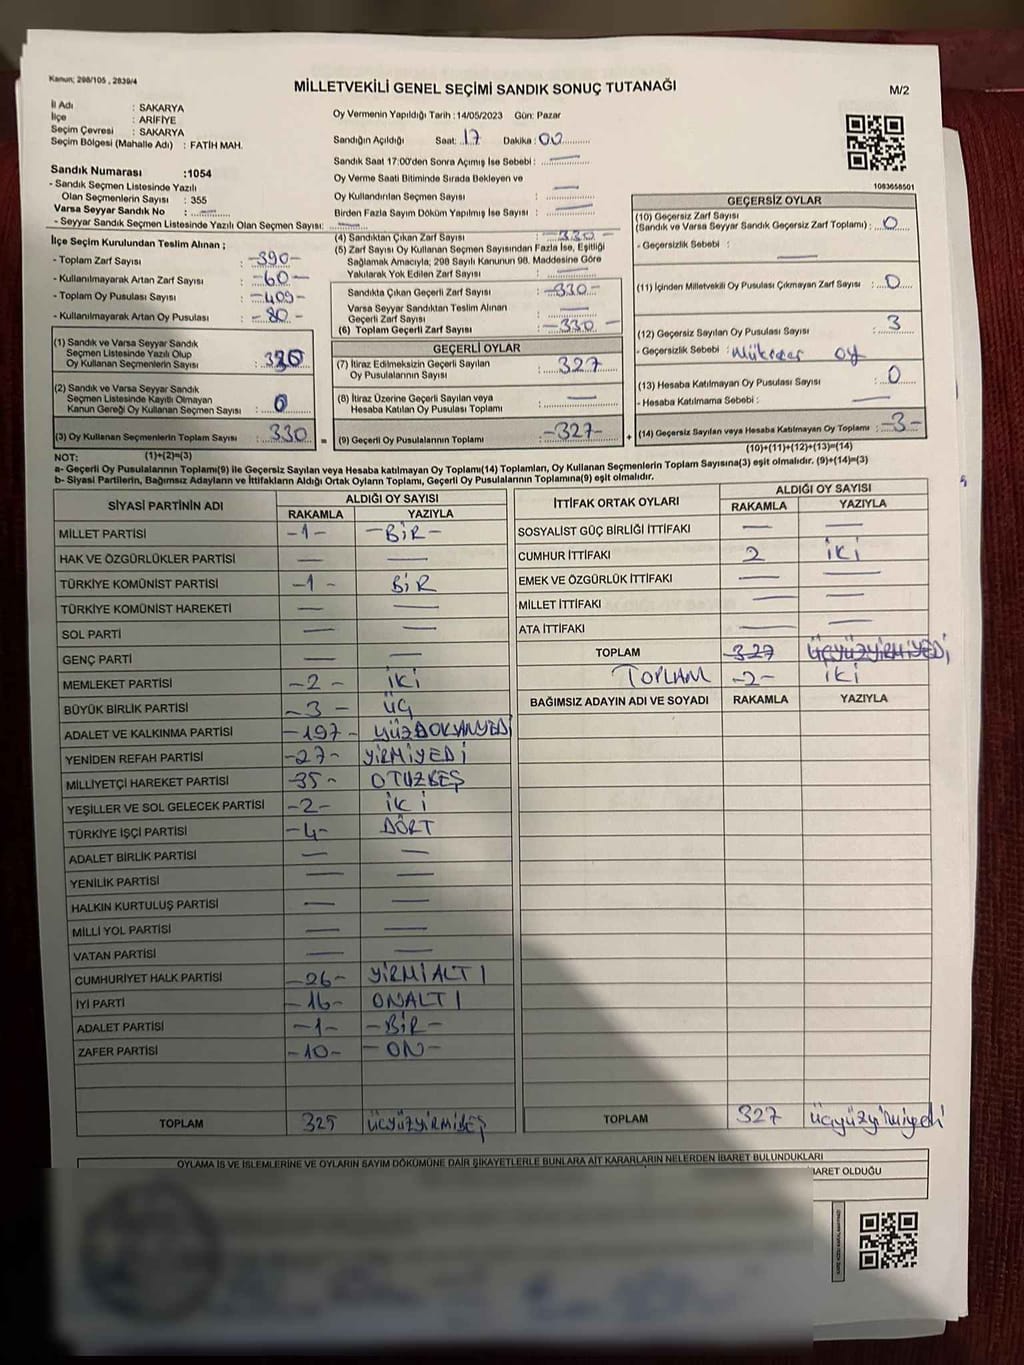 Kanun; 298/105 , 2839/4
MİLLETVEKİLİ GENEL SEÇİMİ SANDIK SONUÇ TUTANAĞI
M/2
İl Adı : SAKARYA
İlçe : ARİFİYE
Seçim Çevresi : SAKARYA
Seçim Bölgesi (Mahalle Adı) : FATİH MAH.
Sandık Numarası :1054
- Sandık Seçmen Listesinde Yazılı
Olan Seçmenlerin Sayısı : 355
Varsa Seyyar Sandık No :
- Seyyar Sandık Seçmen Listesinde Yazılı Olan Seçmen Sayısı:
Oy Vermenin Yapıldığı Tarih :14/05/2023 Gün: Pazar
Sandığın Açıldığı Saat: 17 Dakika : 00
Sandık Saat 17:00'den Sonra Açımış İse Sebebi : —
Oy Verme Saati Bitiminde Sırada Bekleyen ve
Oy Kullandırılan Seçmen Sayısı : —
Birden Fazla Sayım Döküm Yapılmış İse Sayısı : —
1083658501
İlçe Seçim Kurulundan Teslim Alınan ;
- Toplam Zarf Sayısı : -390-
- Kullanılmayarak Artan Zarf Sayısı : -60-
- Toplam Oy Pusulası Sayısı : -409-
- Kullanılmayarak Artan Oy Pusulası : -80-
(1) Sandık ve Varsa Seyyar Sandık
Seçmen Listesinde Yazılı Olup
Oy Kullanan Seçmenlerin Sayısı :
(2) Sandık ve Varsa Seyyar Sandık
Seçmen Listesinde Kayıtlı Olmayan
Kanun Gereği Oy Kullanan Seçmen Sayısı : 0
(3) Oy Kullanan Seçmenlerin Toplam Sayısı : 330
(4) Sandıktan Çıkan Zarf Sayısı : -330-
(5) Zarf Sayısı Oy Kullanan Seçmen Sayısından Fazla İse, Eşitliği
Sağlamak Amacıyla; 298 Sayılı Kanunun 98. Maddesine Göre
Yakılarak Yok Edilen Zarf Sayısı : —
Sandıkta Çıkan Geçerli Zarf Sayısı : -330-
Varsa Seyyar Sandıktan Teslim Alınan
Geçerli Zarf Sayısı : —
(6) Toplam Geçerli Zarf Sayısı : -330-
GEÇERLİ OYLAR
(7) İtiraz Edilmeksizin Geçerli Sayılan
Oy Pusulalarının Sayısı : 327
(8) İtiraz Üzerine Geçerli Sayılan veya
Hesaba Katılan Oy Pusulası Toplamı : —
= (9) Geçerli Oy Pusulalarının Toplamı : -327-
GEÇERSİZ OYLAR
(10) Geçersiz Zarf Sayısı
(Sandık ve Varsa Seyyar Sandık Geçersiz Zarf Toplamı) : 0
- Geçersizlik Sebebi : —
(11) İçinden Milletvekili Oy Pusulası Çıkmayan Zarf Sayısı : 0
(12) Geçersiz Sayılan Oy Pusulası Sayısı : 3
- Geçersizlik Sebebi : Mükerrer oy
(13) Hesaba Katılmayan Oy Pusulası Sayısı : 0
- Hesaba Katılmama Sebebi : —
+ (14) Geçersiz Sayılan veya Hesaba Katılmayan Oy Toplamı : -3-
NOT: (1)+(2)=(3)
(10)+(11)+(12)+(13)=(14)
a- Geçerli Oy Pusulalarının Toplamı(9) ile Geçersiz Sayılan veya Hesaba katılmayan Oy Toplamı(14) Toplamları, Oy Kullanan Seçmenlerin Toplam Sayısına(3) eşit olmalıdır. (9)+(14)=(3)
b- Siyasi Partilerin, Bağımsız Adayların ve İttifakların Aldığı Ortak Oyların Toplamı, Geçerli Oy Pusulalarının Toplamına(9) eşit olmalıdır.
SİYASİ PARTİNİN ADI ALDIĞI OY SAYISI
RAKAMLA YAZIYLA
MİLLET PARTİSİ -1- -BİR-
HAK VE ÖZGÜRLÜKLER PARTİSİ — —
TÜRKİYE KOMÜNİST PARTİSİ -1- BİR
TÜRKİYE KOMÜNİST HAREKETİ — —
SOL PARTİ — —
GENÇ PARTİ — —
MEMLEKET PARTİSİ -2- İKİ
BÜYÜK BİRLİK PARTİSİ -3- ÜÇ
ADALET VE KALKINMA PARTİSİ -197- YÜZDOKSANYEDİ
YENİDEN REFAH PARTİSİ -27- YİRMİYEDİ
MİLLİYETÇİ HAREKET PARTİSİ -35- OTUZBEŞ
YEŞİLLER VE SOL GELECEK PARTİSİ -2- İKİ
TÜRKİYE İŞÇİ PARTİSİ -4- DÖRT
ADALET BİRLİK PARTİSİ — —
YENİLİK PARTİSİ — —
HALKIN KURTULUŞ PARTİSİ — —
MİLLİ YOL PARTİSİ — —
VATAN PARTİSİ — —
CUMHURİYET HALK PARTİSİ -26- YİRMİALTI
İYİ PARTİ -16- ONALTI
ADALET PARTİSİ -1- -BİR-
ZAFER PARTİSİ -10- -ON-
TOPLAM 325 ÜÇYÜZYİRMİBEŞ
İTTİFAK ORTAK OYLARI ALDIĞI OY SAYISI
RAKAMLA YAZIYLA
SOSYALİST GÜÇ BİRLİĞİ İTTİFAKI — —
CUMHUR İTTİFAKI 2 İKİ
EMEK VE ÖZGÜRLÜK İTTİFAKI — —
MİLLET İTTİFAKI — —
ATA İTTİFAKI — —
TOPLAM 327 ÜÇYÜZYİRMİYEDİ
TOPLAM -2- İKİ
BAĞIMSIZ ADAYIN ADI VE SOYADI RAKAMLA YAZIYLA
TOPLAM 327 üçyüzyirmiyedi
OYLAMA İŞ VE İŞLEMLERİNE VE OYLARIN SAYIM DÖKÜMÜNE DAİR ŞİKAYETLERLE BUNLARA AİT KARARLARIN NELERDEN İBARET BULUNDUKLARI
BARET OLDUĞU